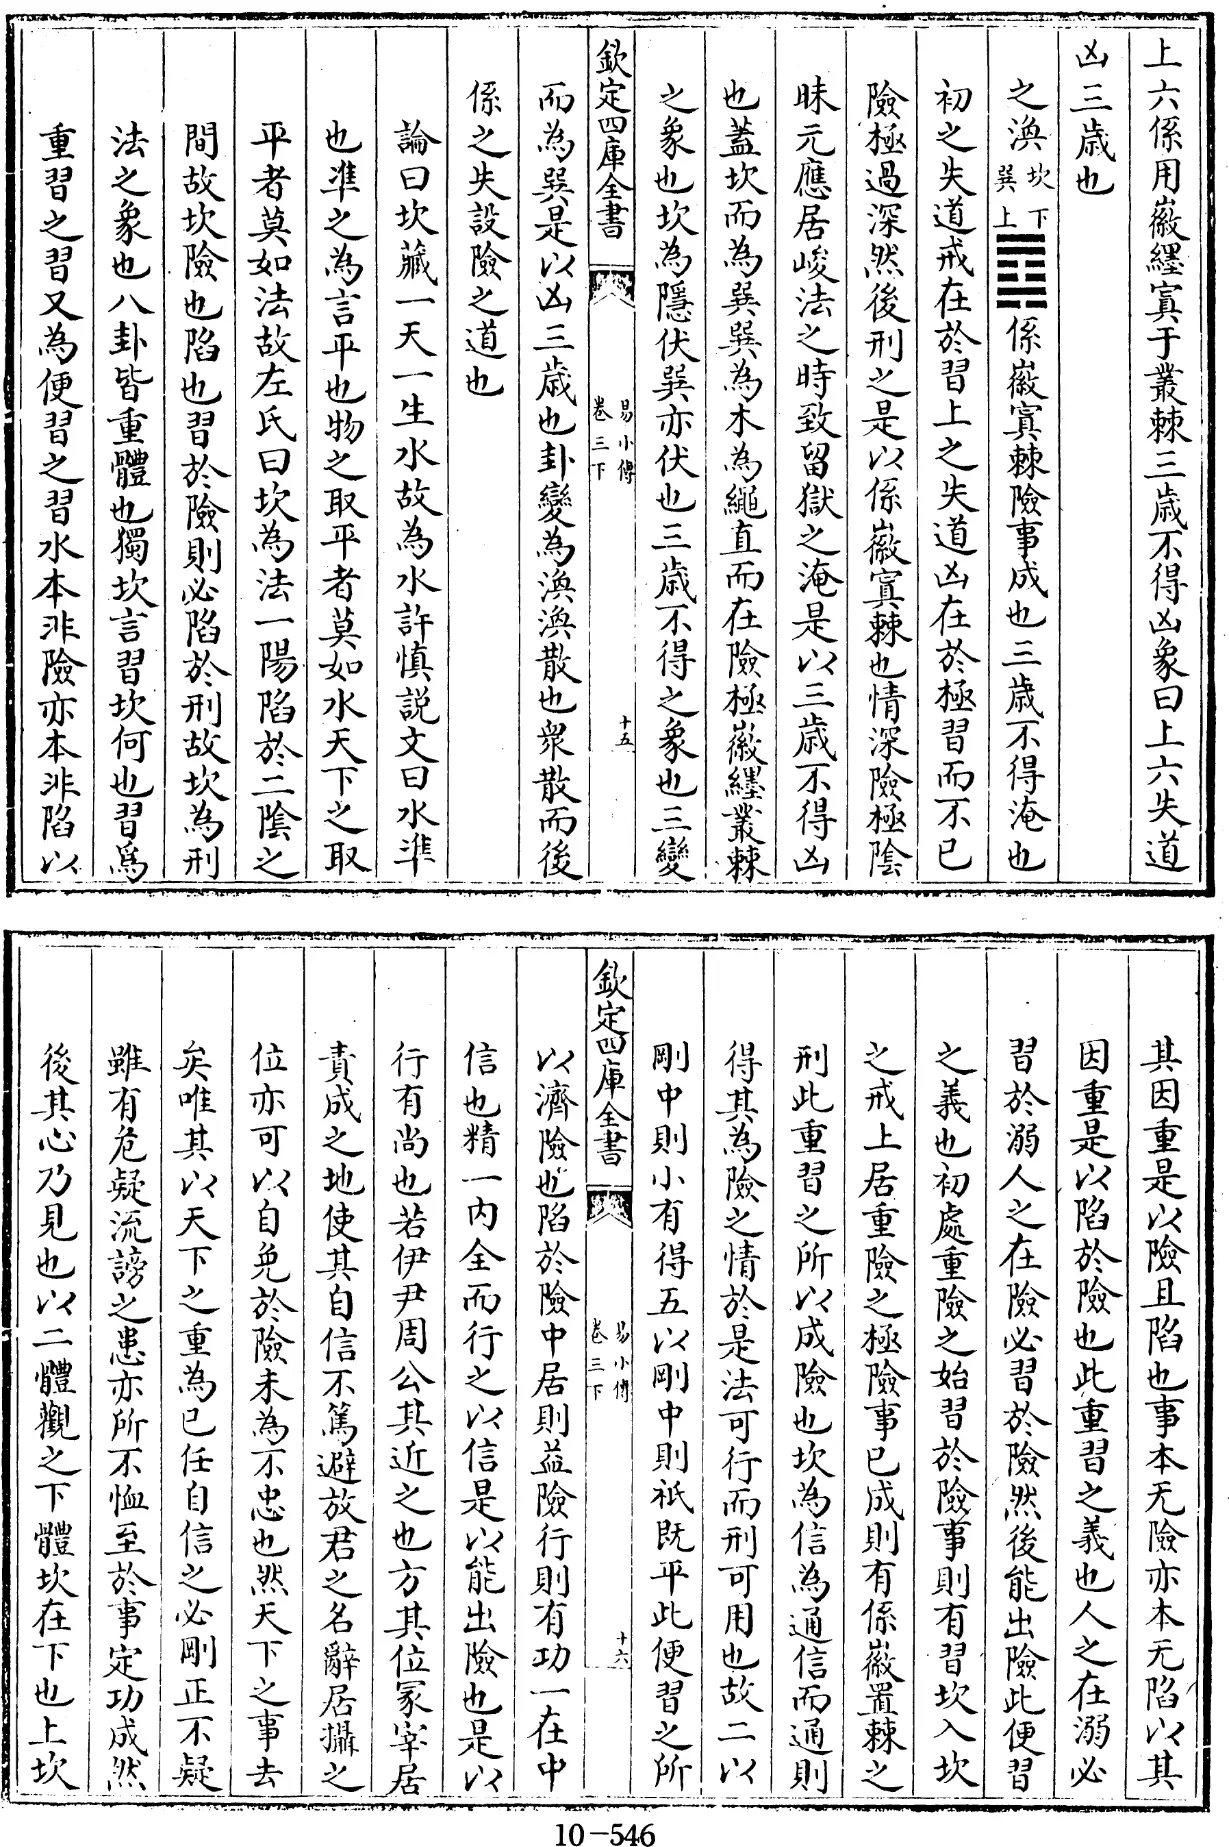 上六係用徽纆寘于叢棘三歲不得凶象曰上六失道
凶三歲也
之渙坎下巽上䷺係徽寘棘險事成也三歲不得淹也
初之失道戒在於習上之失道凶在於極習而不已
險極過深然後刑之是以係徽寘棘也情深險極陰
昧元應居峻法之時致留獄之淹是以三歲不得凶
也蓋坎而為巽巽為木為繩直而在險極徽纆叢棘
之象也坎為隱伏巽亦伏也三歲不得之象也三變
欽定四庫全書
易小傳
卷三下
十五
而為巽是以凶三歲也卦變為渙渙散也衆散而後
係之失設險之道也
論曰坎藏一天一生水故為水許慎説文曰水準
也準之為言平也物之取平者莫如水天下之取
平者莫如法故左氏曰坎為法一陽陷於二陰之
間故坎險也陷也習於險則必陷於刑故坎為刑
法之象也八卦皆重體也獨坎言習坎何也習爲
重習之習又為便習之習水本非險亦本非陷以
其因重是以險且陷也事本无險亦本无陷以其
因重是以陷於險也此重習之義也人之在溺必
習於溺人之在險必習於險然後能出險此便習
之義也初處重險之始習於險事則有習坎入坎
之戒上居重險之極險事已成則有係徽置棘之
刑此重習之所以成險也坎為信為通信而通則
得其為險之情於是法可行而刑可用也故二以
剛中則小有得五以剛中則祇既平此便習之所
欽定四庫全書
易小傳
卷三下
十六
以濟險也陷於險中居則益險行則有功一在中
信也精一内全而行之以信是以能出險也是以
行有尚也若伊尹周公其近之也方其位冢宰居
責成之地使其自信不篤避放君之名辭居攝之
位亦可以自免於險未為不忠也然天下之事去
矣唯其以天下之重為已任自信之必剛正不疑
雖有危疑流謗之患亦所不恤至於事定功成然
後其心乃見也以二體觀之下體坎在下也上坎
10-546